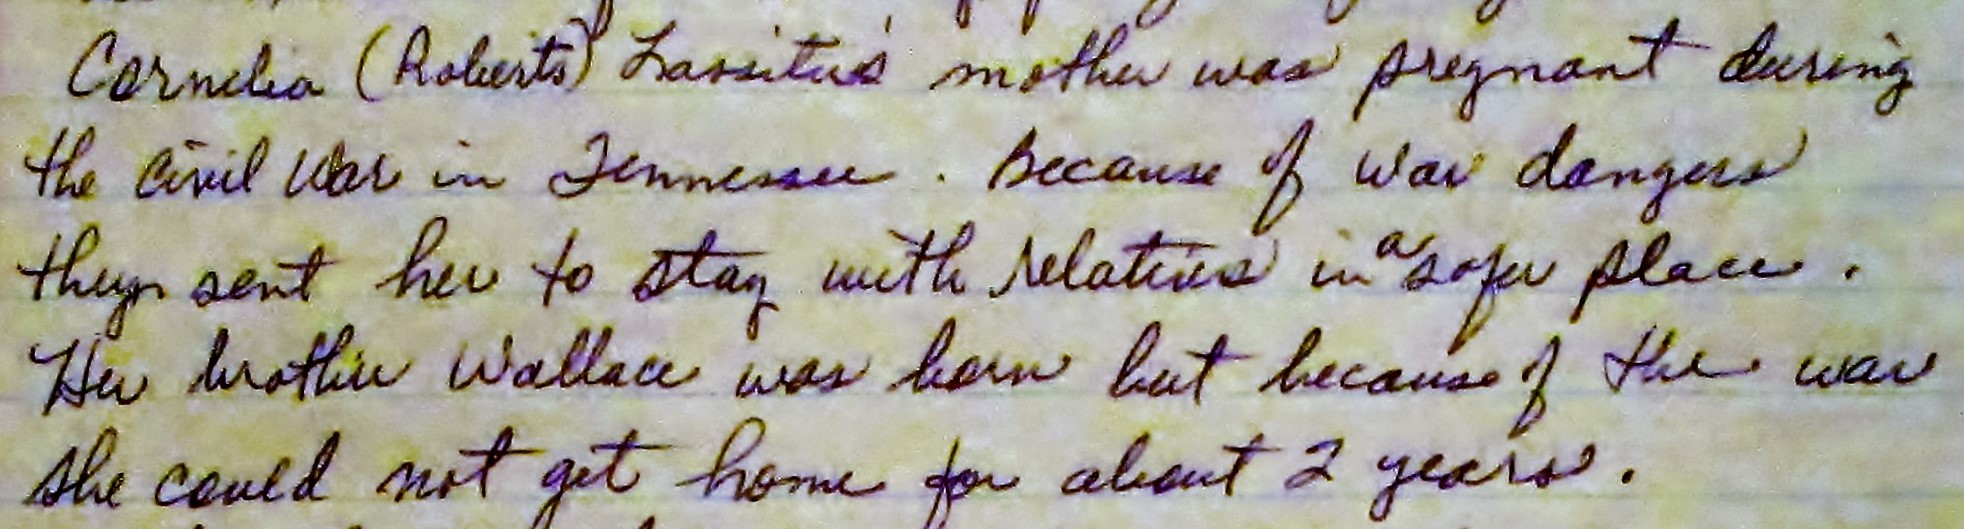 Cornelia (Roberts) Lassiter's mother was pregnant during
the Civil War in Tennessee. Because of war dangers
they sent her to stay with relatives in a safer place.
Her brother Wallace was born but because of the war
she could not get home for about 2 years.